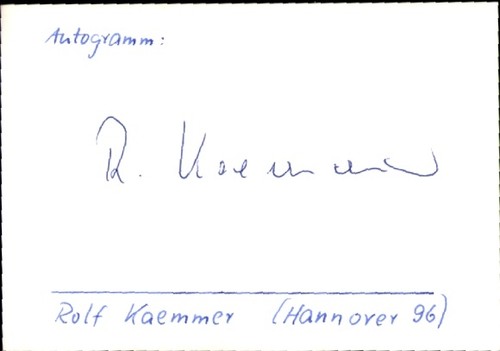 Autogramm:
R. Kaemmer
Rolf Kaemmer (Hannover 96)